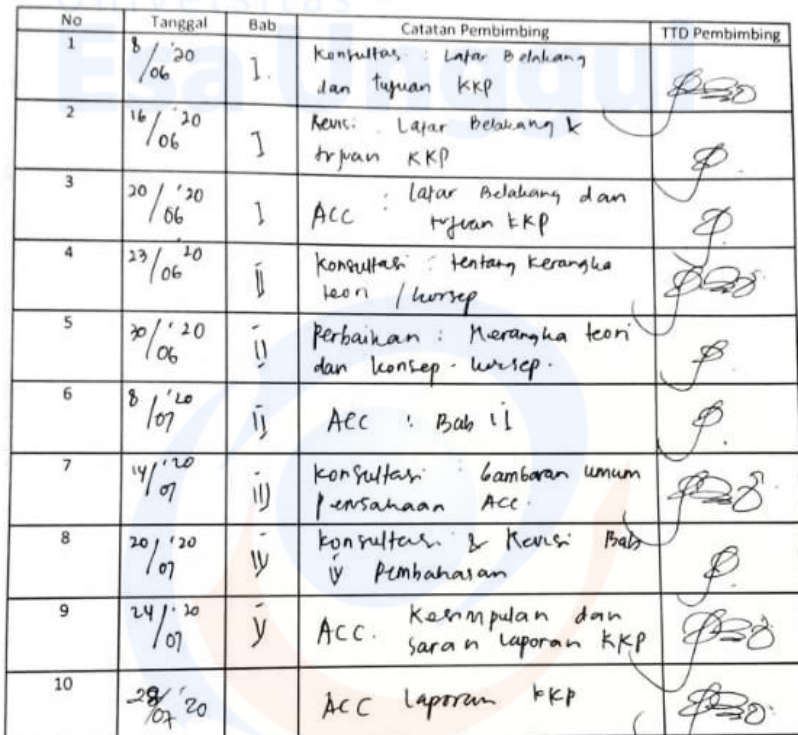 Universitas
Esa Unggul
No Tanggal Bab Catatan Pembimbing TTD Pembimbing
1 8/06 '20 I. Konsultasi : Latar Belakang
dan tujuan KKP
2 16/06 '20 I Revisi : Latar Belakang &
tujuan KKP
3 20/06 '20 I ACC : Latar Belakang dan
tujuan KKP
4 23/06 '20 II Konsultasi : tentang Kerangka
teori / konsep
5 30/06 '20 II Perbaikan : Kerangka teori
dan konsep - konsep.
6 8/07 '20 II ACC : Bab II
7 14/07 '20 III Konsultasi : Gambaran umum
Perusahaan ACC.
8 20/07 '20 IV Konsultasi & Revisi Bab
IV Pembahasan
9 24/07 '20 V ACC. Kesimpulan dan
saran laporan KKP
10 28/07 '20 ACC Laporan KKP